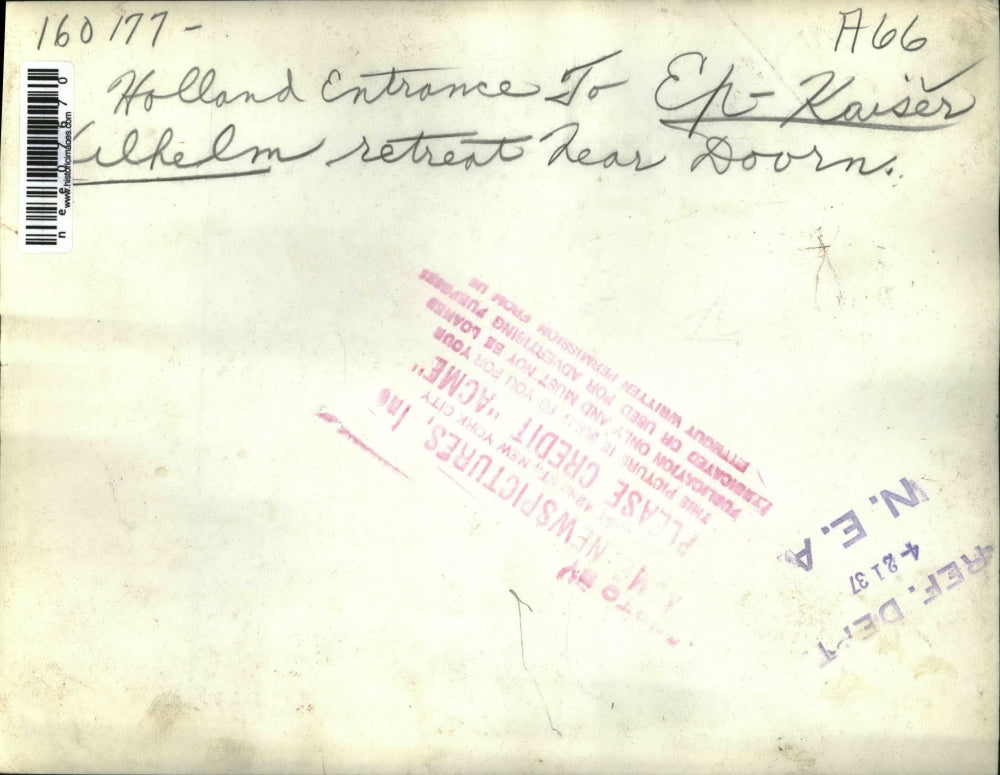 160177-
A66
Holland Entrance To Ex-Kaiser
Wilhelm retreat near Doorn.
www.historicimages.com
PHOTO BY
ACME NEWSPICTURES, Inc
NEW YORK CITY
PLEASE CREDIT "ACME"
THIS PICTURE IS SOLD TO YOU FOR YOUR
PUBLICATION ONLY AND MUST NOT BE LOANED
SYNDICATED OR USED FOR ADVERTISING PURPOSES
WITHOUT WRITTEN PERMISSION FROM US
REF. DEPT
4-21 37
N. E. A